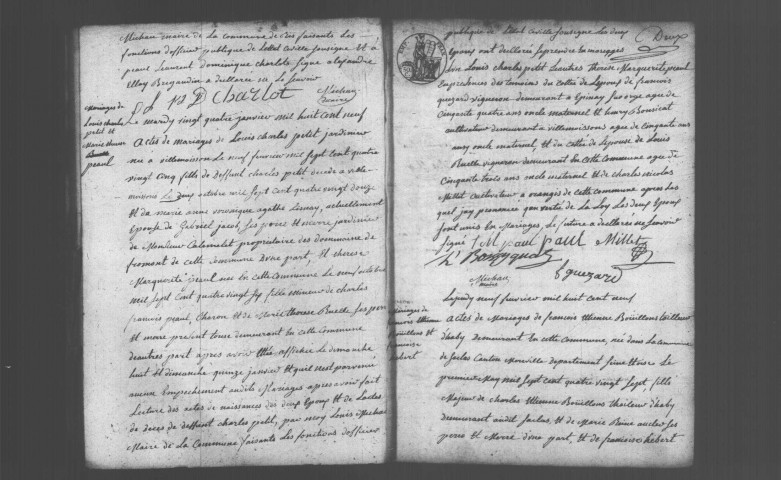 Michau maire de la commune de Ris faisante les
fonctions d'officier publique de Lettat civille soussigne et a
peaul Laurent dominique charlote signe alejandrie
Elloy Brigandin a declarez ne le scavoir
P D Charlot Michau
maire
Mariages de
Louis charle
petit et
Marie therese
Buelle
peaul
Le mardy vingt quatre janvier mil huit cent neuf
Actes de mariages de Louis charles petit jardinier
né a villemoisson Le neuf fevrier mil sept cent quatre
vingt cinq fils de deffunt charles petit decede a ville
moisson Le deux octobre mil sept cent quatre vingt douze
Et de marie anne veronique agathe Lesuay, actuellement
Epouse de Gabriel jacob, ses pere et mere jardinier
de Monsieur Calmelet proprietaire des dommaine de
fromont de cette commune d'une part, et therese
Marguerite peaul née en cette commune Le neuf octobre
mil sept cent quatre vingt six fille mineur de charles
francois peaul, Charon et de Marie therese Buelle ses pere
et mere present tous demeurant en cette commune
d'autres part apres avoir été affichée Le dimanche
huit et dimanche quinze janvier et quil n'est parvenue
aucun Empechement audite Mariages apres avoir fait
Lecture des actes de naissances des deux Epoux et de Lactes
de deces de deffunt charles petit, par moy Louis Michau
Maire de La Commune faisante Les fonctions d'officier
publique de Lettat civille soussigne Les deux
Deux
Epoux ont declarez se prendre en mariages
L'un Louis charles petit Lautres Therese Marguerite peaul
En presences des temoins du cottée de Lepoux de francois
guezard vigneron demeurant a Epinay sur orge agee de
Cinquante quatre ans oncle maternel et henry Bousicat
cultivateur demeurant a villemoisson agee de cinquante six
ans oncle maternel, et du cottée de Lepouse de Louis
Buelle vigneron demeurant en cette commune agee de
Cinquante trois ans oncle maternel et de charles nicolas
Millet cultivateur a orangis de cette commune apres Les
quel jay prononcez qua vertu de La Loy Les deux Epoux
sont unis En Mariages, Le future a declarez ne scavoir
signé M paul paul Millet
Michau
maire
guezard
Le jeudy neuf fevrier mil huit cent neuf
Mariages de
francois Etienne
Bouillons et
francoise
hebert
Actes de Mariages de francois Etienne Bouillons tailleur
d'haby demeurant en cette commune, née dans La commune
de Saclas Canton Merville departement seine et oise Le
premier May mil sept cent quatre vingt sept fille
Majeur de charles Etienne Bouillons tailleur d'haby
demeurant audit saclas, et de Marie Reine auclere ses
pere et Merre d'une part, et de francoise hebert